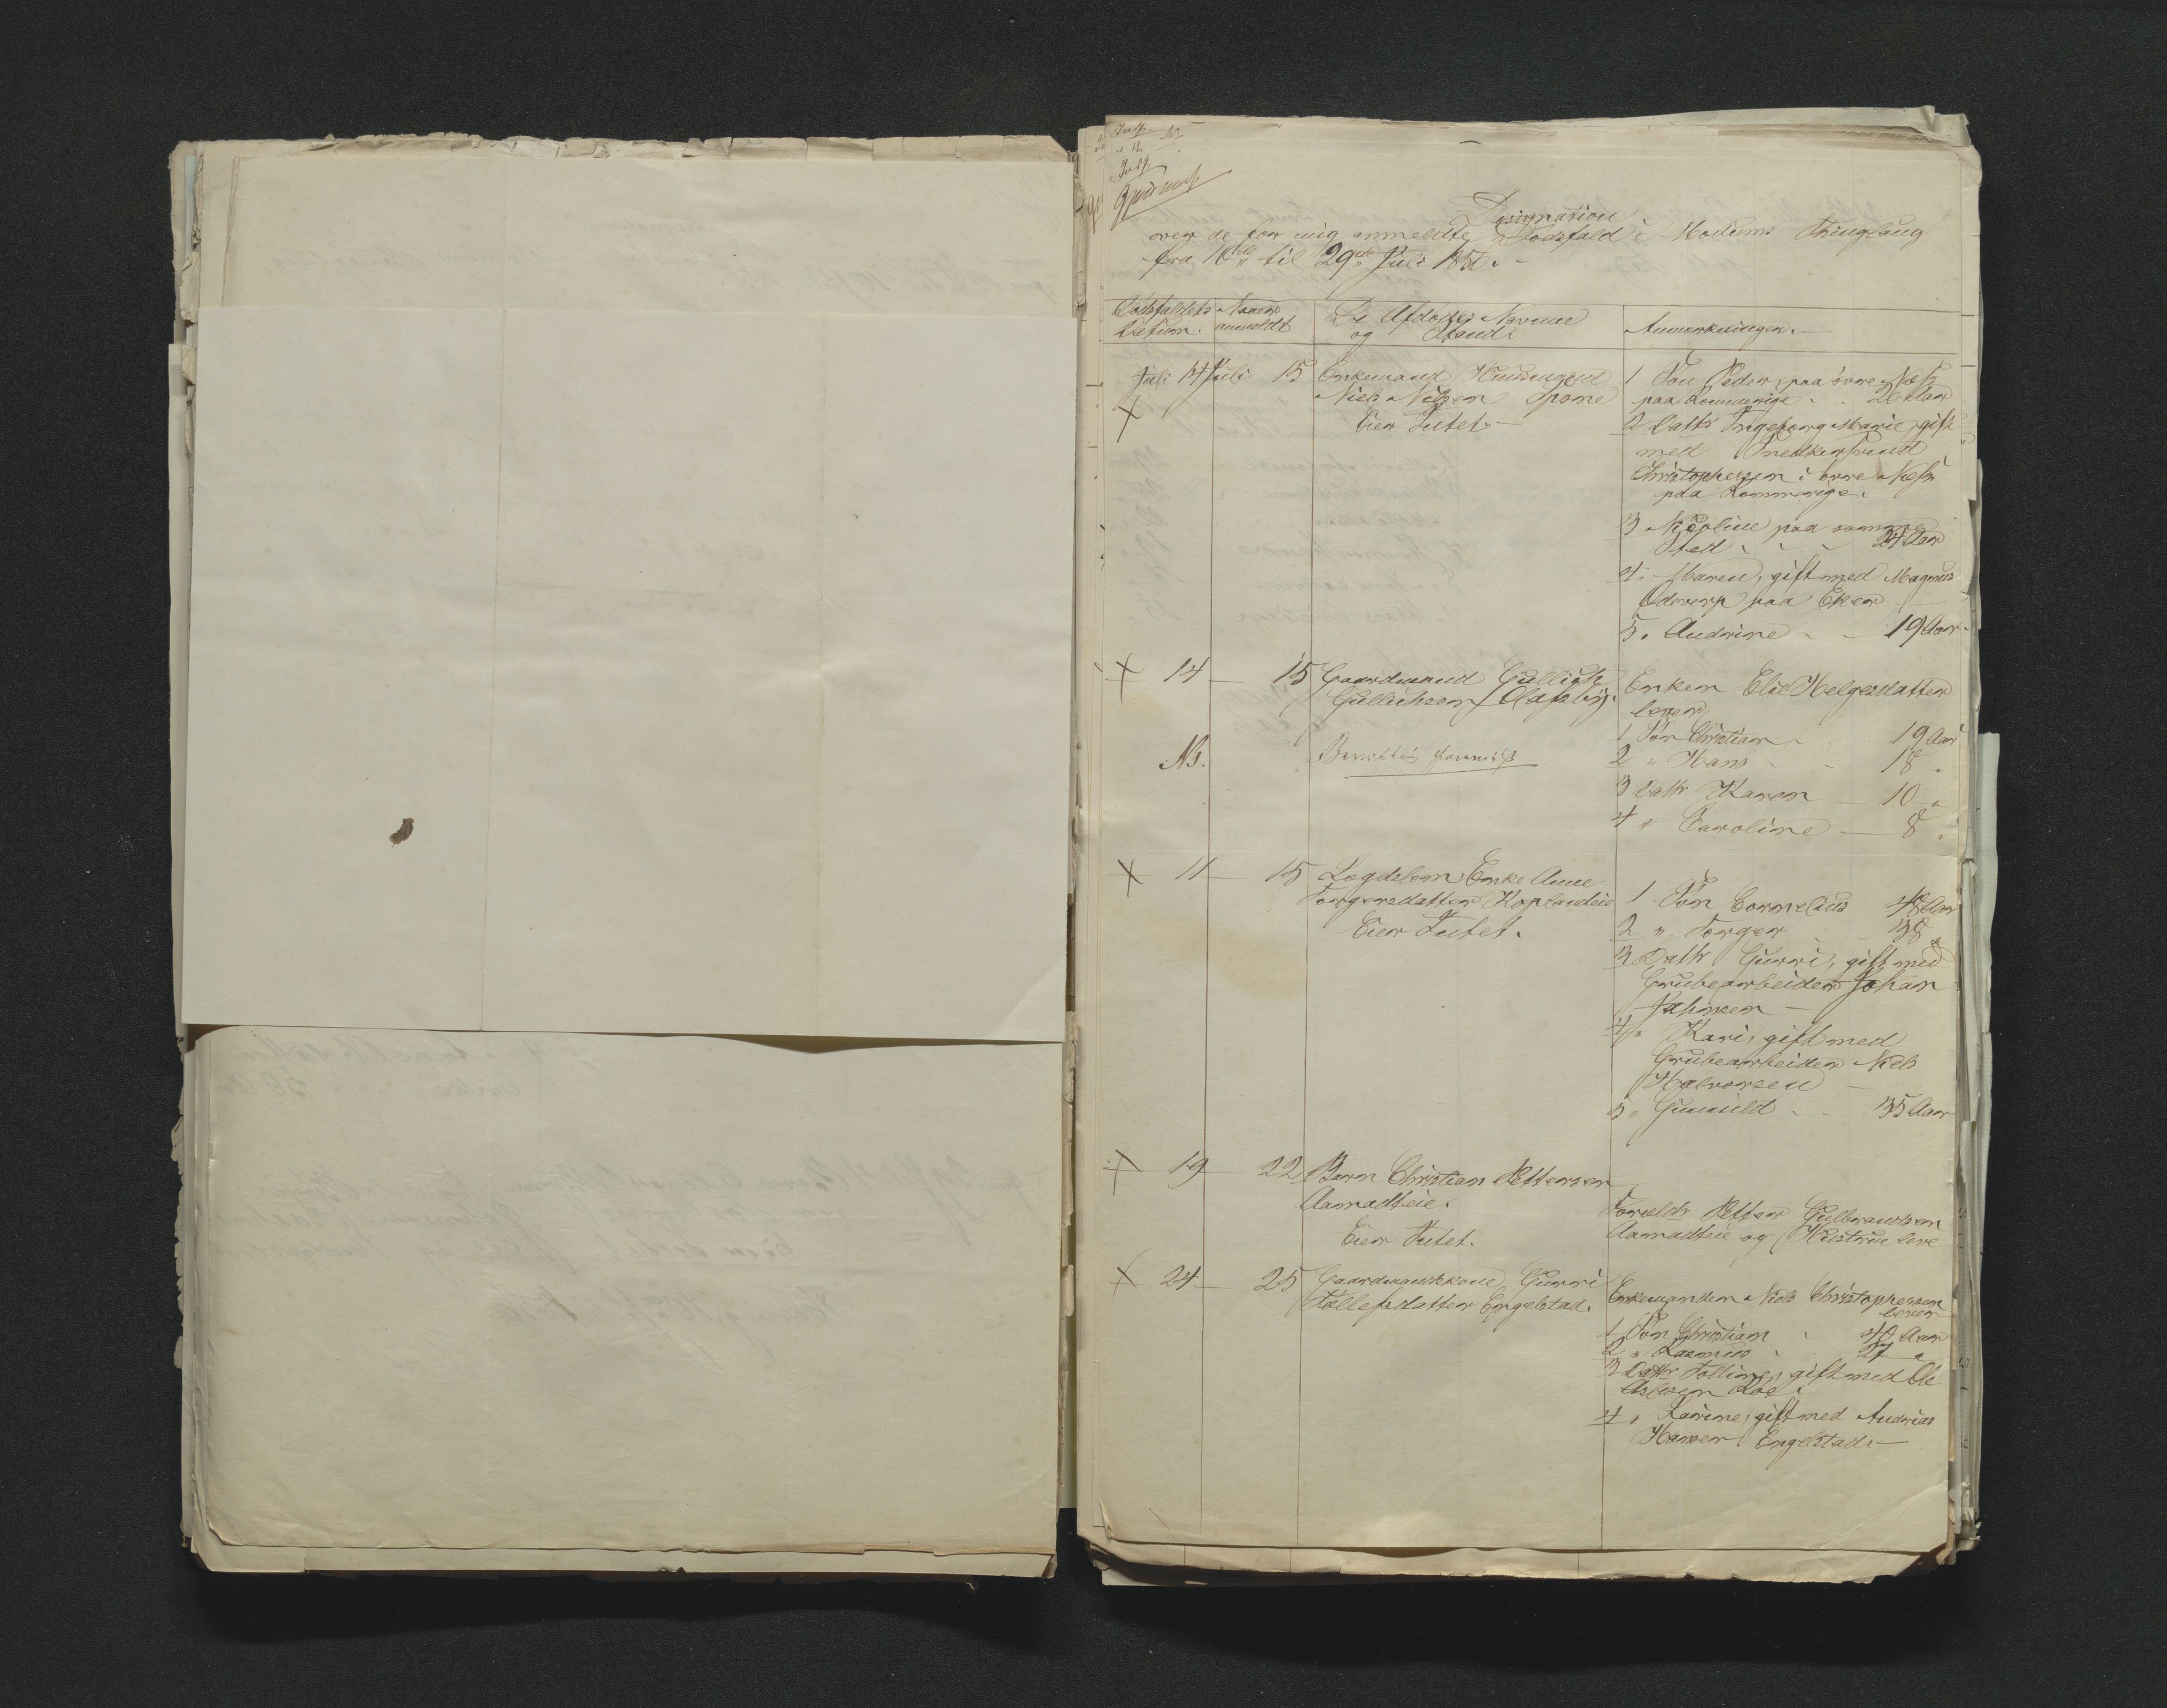 Designation
over de for mig anmeldte Dødsfald i Modums Thinglaug
fra 10de til 29de Juli 1851.
Dødsfaldets Datum. Naar anmeldt De Afdødes Navne og Stand. Anmerkninger.
Juli 14 Juli 15 Enkemand Huusmand
Niels Nilsen Spone
Eier Intet.
1 Søn Peder, paa øvre Næss
paa Kommerige. 26 Aar
2 Dattr Ingeborg Marie, gift
med Snedkersvend
Christophersen i øvre Næss
paa Kommerige.
3 Nicoline paa samme
Sted 24 Aar
4. Maren, gift med Magnus
paa Eker
5. Andrine 19 Aar.
14 15 Gaardmand Gullich
Gullichsen
Enken Elie Helgesdatter
lever
1 Søn Christian 19 Aar
NB.
2 " Hans 18 "
3 Dattr Karen 10 "
4 " Caroline 8 "
11 15 Lægdslem Enke Anne
Torgersdatter Koplandeie
Eier Intet.
1 Søn Cornelius 48 Aar
2 " Torger 38 "
3 Dattr Gurri, gift med
Grubearbeider Johan
Jahnsen
4 " Kari, gift med
Grubearbeider Niels
Halvorsen
5 " Gunnild 35 Aar
19 22 Barn Christian Pettersen
Aamodteie.
Eier Intet.
Foreldr Petter Gulbrandsen
Aamodteie og Hustrue leve
24 25 Gaardmandskone Gurri
Tollefsdatter Engelstad.
Enkemanden Niels Christophersen
lever
1 Søn Christian 40 Aar
2 " Rasmus 27 "
3 Dattr Tolline, gift med Ole
4 " Karine, gift med Andrias
Hansen Engelstad.